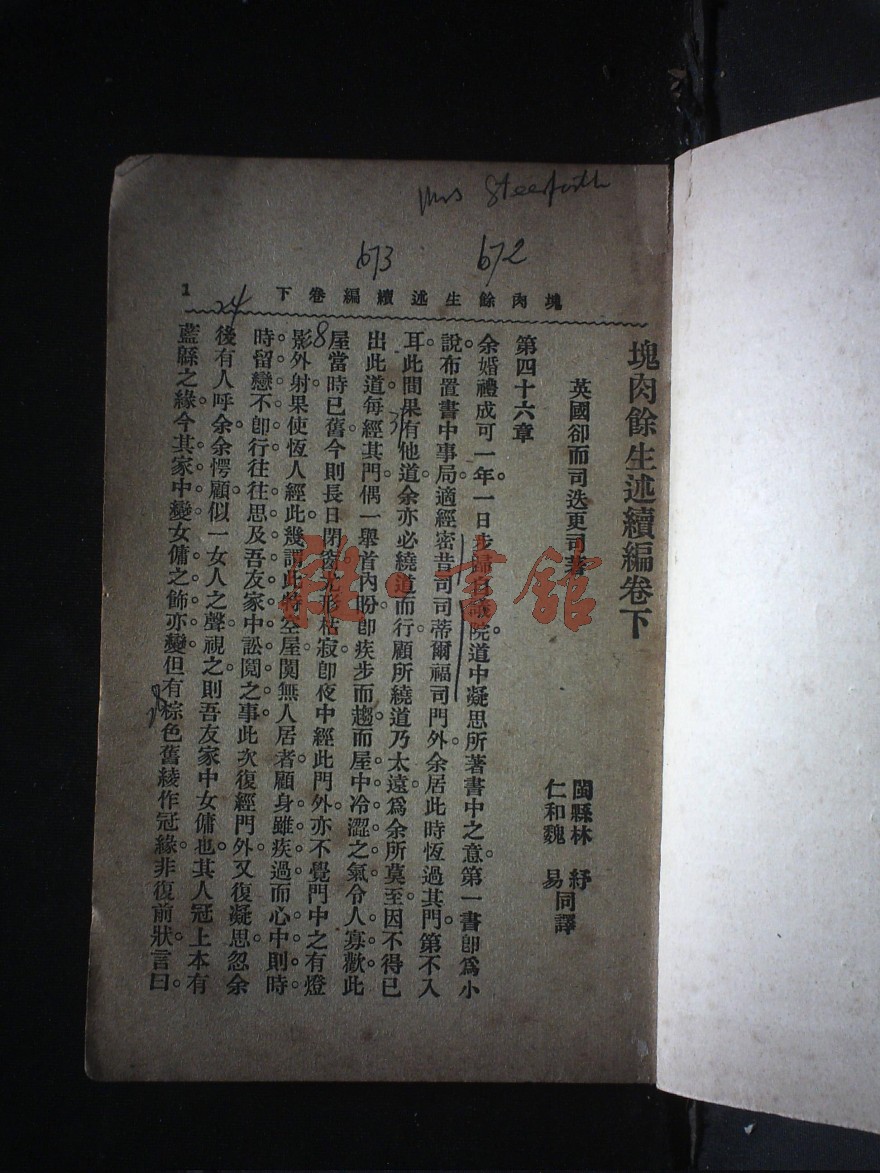 Mrs Steerforth
673
672
塊肉餘生述續編卷下
1
塊肉餘生述續編卷下
英國卻而司迭更司著
閩縣林紓
仁和魏易同譯
第四十六章
余婚禮成可一年。一日步歸自議院。道中凝思所著書中之意。第一書卽爲小
說。布置書中事局。適經密昔司司蒂爾福司門外。余居此時。恆過其門第不入
耳。此間果有他道。余亦必繞道而行。顧所繞道乃太遠。爲余所莫至。因不得已
出此道。每經其門。偶一舉首內盼。卽疾步而趨。而屋中冷澀之氣。令人寡歡。此
屋當時已舊。今則長日閉窗。尤形枯寂。卽夜中經此門外。亦不覺門中之有燈
影外射。果使恆人經此。幾謂此特空屋闃無人居者。顧身雖疾過。而心中則時
時留戀不卽行。往往思及吾友家中訟鬩之事。此次復經門外。又復凝思。忽余
後有人呼余。余愕顧似一女人之聲。視之則吾友家中女傭也。其人冠上本有
藍緜之緣。今其家中變。女傭之飾亦變。但有棕色舊綾作冠緣。非復前狀。言曰。
24
8
31
28
雜·書館